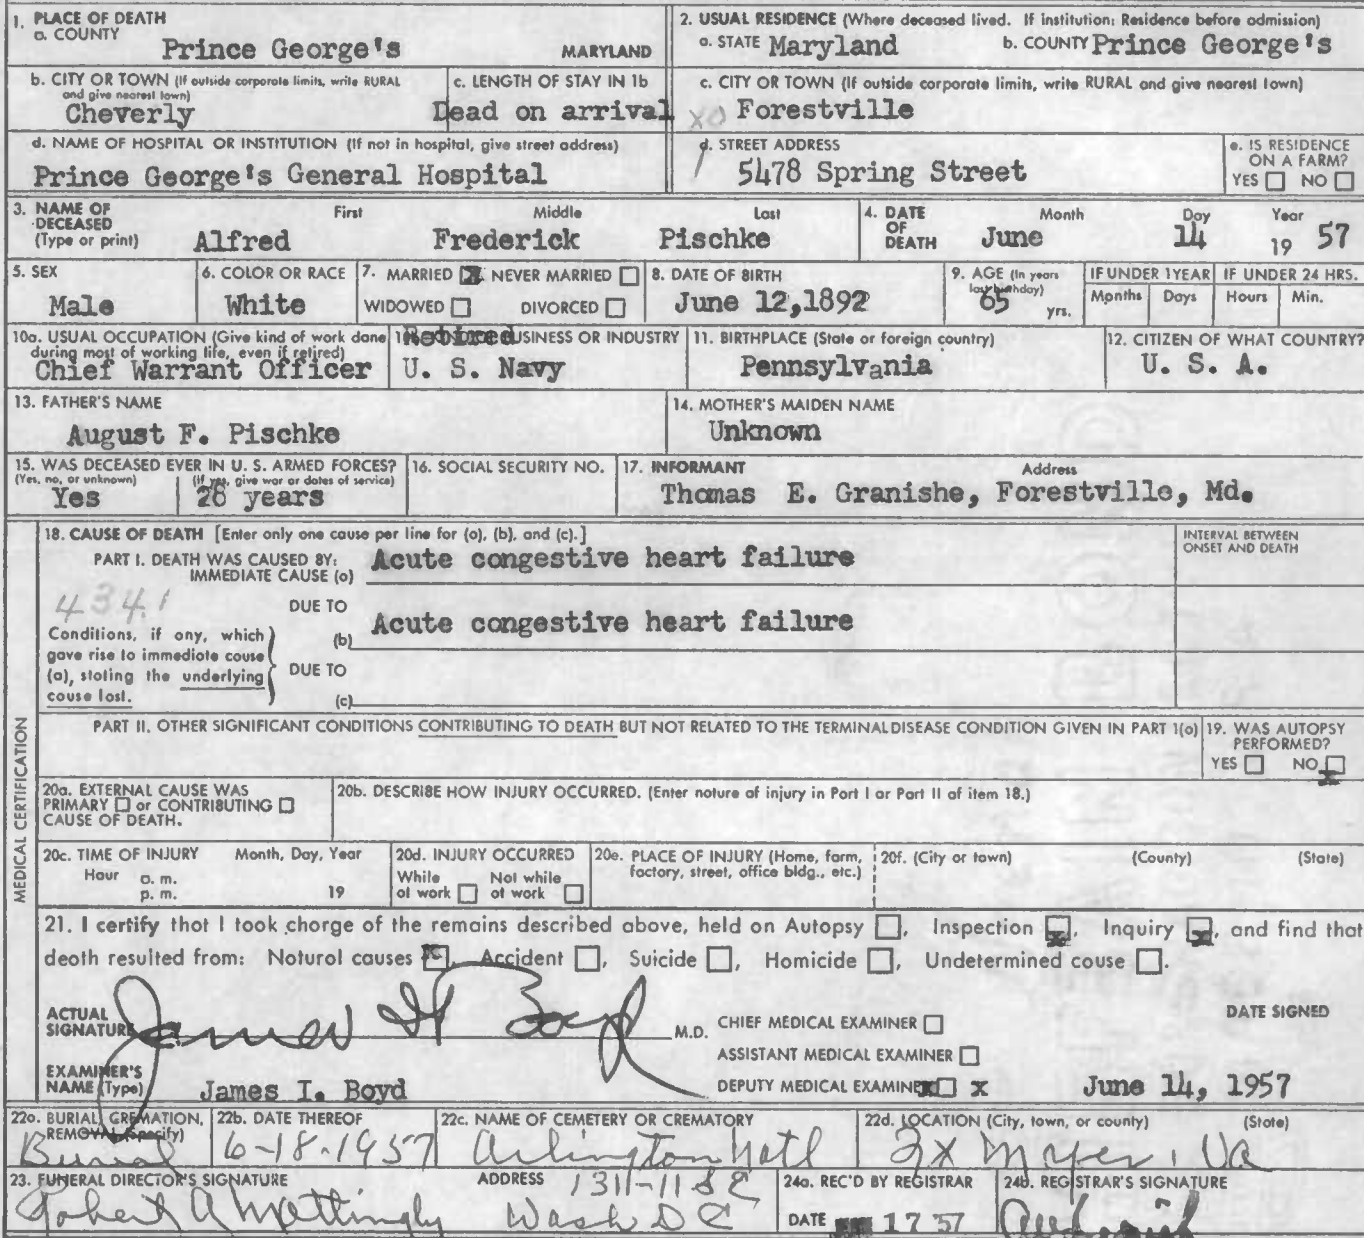 1. PLACE OF DEATH
a. COUNTY
Prince George's MARYLAND
2. USUAL RESIDENCE (Where deceased lived. If institution: Residence before admission)
a. STATE Maryland b. COUNTY Prince George's
b. CITY OR TOWN (If outside corporate limits, write RURAL and give nearest town)
Cheverly
c. LENGTH OF STAY IN 1b
Dead on arrival
c. CITY OR TOWN (If outside corporate limits, write RURAL and give nearest town)
XO Forestville
d. NAME OF HOSPITAL OR INSTITUTION (If not in hospital, give street address)
Prince George's General Hospital
d. STREET ADDRESS
5478 Spring Street
e. IS RESIDENCE ON A FARM?
YES NO
3. NAME OF DECEASED (Type or print)
First Middle Last
Alfred Frederick Pischke
4. DATE OF DEATH
Month Day Year
June 14 19 57
5. SEX
Male
6. COLOR OR RACE
White
7. MARRIED NEVER MARRIED
WIDOWED DIVORCED
8. DATE OF BIRTH
June 12,1892
9. AGE (In years last birthday)
65 yrs.
IF UNDER 1 YEAR IF UNDER 24 HRS.
Months Days Hours Min.
10a. USUAL OCCUPATION (Give kind of work done during most of working life, even if retired)
Chief Warrant Officer
Retired BUSINESS OR INDUSTRY
U. S. Navy
11. BIRTHPLACE (State or foreign country)
Pennsylvania
12. CITIZEN OF WHAT COUNTRY?
U. S. A.
13. FATHER'S NAME
August F. Pischke
14. MOTHER'S MAIDEN NAME
Unknown
15. WAS DECEASED EVER IN U. S. ARMED FORCES?
(Yes, no, or unknown) (If yes, give war or dates of service)
Yes 26 years
16. SOCIAL SECURITY NO.
17. INFORMANT Address
Thomas E. Granishe, Forestville, Md.
MEDICAL CERTIFICATION
18. CAUSE OF DEATH [Enter only one cause per line for (a), (b), and (c).]
INTERVAL BETWEEN ONSET AND DEATH
PART I. DEATH WAS CAUSED BY:
IMMEDIATE CAUSE (a) Acute congestive heart failure
434.1
DUE TO
(b) Acute congestive heart failure
Conditions, if any, which gave rise to immediate cause (a), stating the underlying cause last.
DUE TO
(c)
PART II. OTHER SIGNIFICANT CONDITIONS CONTRIBUTING TO DEATH BUT NOT RELATED TO THE TERMINAL DISEASE CONDITION GIVEN IN PART 1(a)
19. WAS AUTOPSY PERFORMED?
YES NO x
20a. EXTERNAL CAUSE WAS PRIMARY or CONTRIBUTING CAUSE OF DEATH.
20b. DESCRIBE HOW INJURY OCCURRED. (Enter nature of injury in Part I or Part II of item 18.)
20c. TIME OF INJURY Month, Day, Year
Hour a. m.
p. m. 19
20d. INJURY OCCURRED
While at work Not while at work
20e. PLACE OF INJURY (Home, farm, factory, street, office bldg., etc.)
20f. (City or town) (County) (State)
21. I certify that I took charge of the remains described above, held on Autopsy , Inspection x, Inquiry x, and find that
death resulted from: Natural causes x, Accident , Suicide , Homicide , Undetermined cause .
ACTUAL SIGNATURE James I Boyd M.D.
CHIEF MEDICAL EXAMINER
ASSISTANT MEDICAL EXAMINER
DEPUTY MEDICAL EXAMINER x
DATE SIGNED
June 14, 1957
EXAMINER'S NAME (Type) James I. Boyd
22a. BURIAL, CREMATION, REMOVAL (Specify)
Burial
22b. DATE THEREOF
6-18-1957
22c. NAME OF CEMETERY OR CREMATORY
Arlington Natl
22d. LOCATION (City, town, or county) (State)
Ft Myer, Va
23. FUNERAL DIRECTOR'S SIGNATURE
Robert A Mattingly
ADDRESS
1311-11 SE
Wash D C
24a. REC'D BY REGISTRAR
DATE 17 57
24b. REGISTRAR'S SIGNATURE